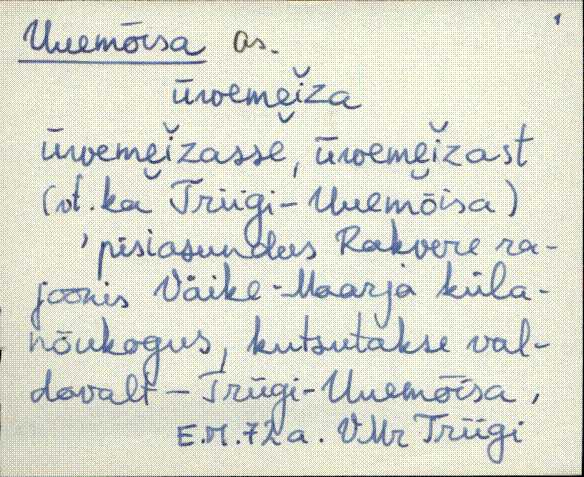 1
Uuemõisa as.
ūvvemẹi̮za
ūvvemẹi̮zasse, ūvvemẹi̮zast
(vt. ka Triigi-Uuemõisa)
'pisiasundus Rakvere ra-
joonis Väike-Maarja küla-
nõukogus, kutsutakse val-
davalt – Triigi-Uuemõisa,
E.M. 72a. VMr Triigi